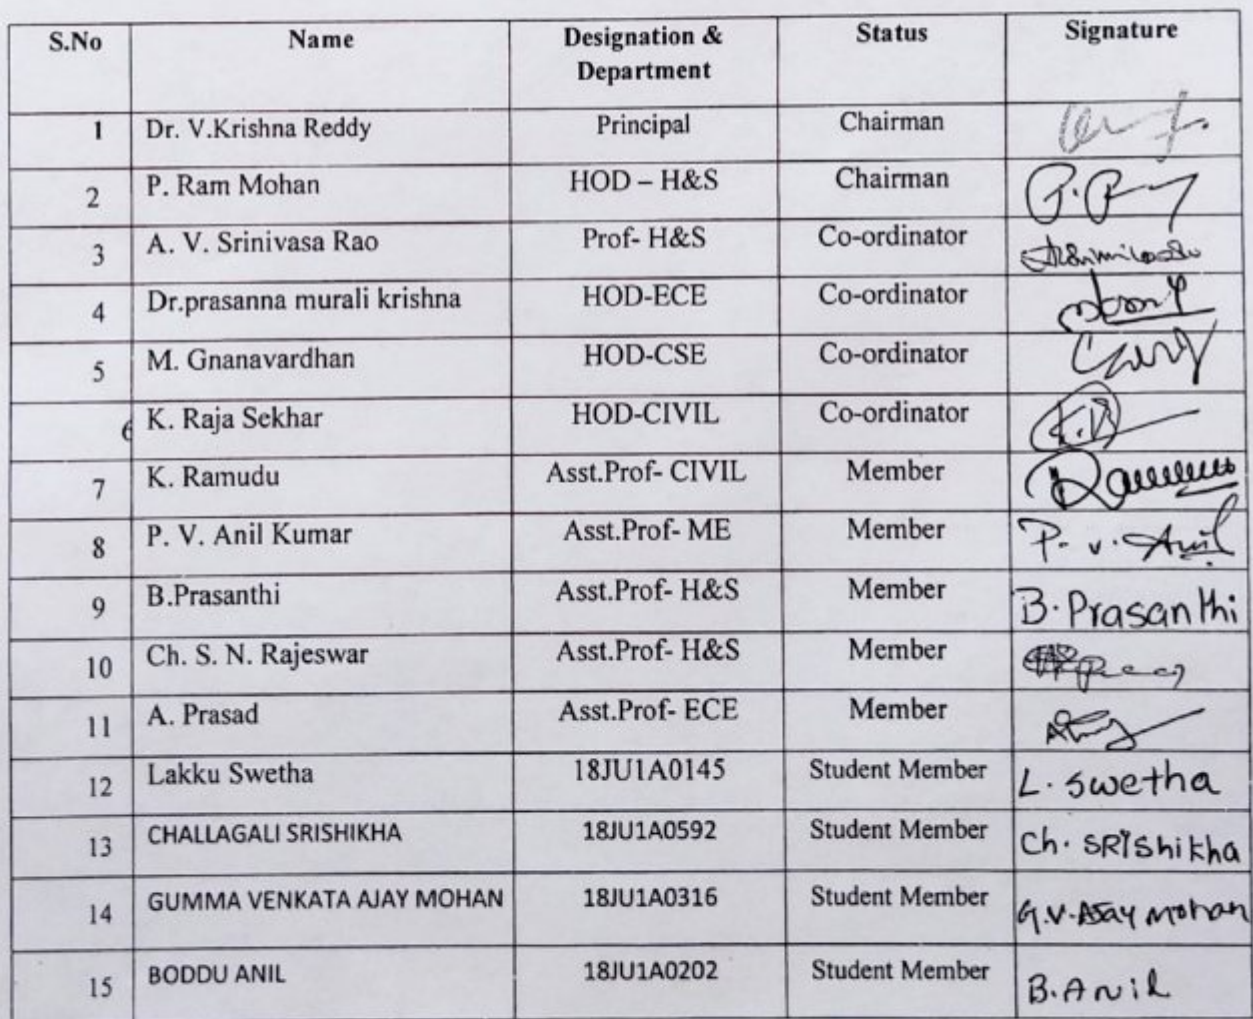 S.No Name Designation & Status Signature
Department
1 Dr. V.Krishna Reddy Principal Chairman
2 P. Ram Mohan HOD – H&S Chairman
3 A. V. Srinivasa Rao Prof- H&S Co-ordinator
4 Dr.prasanna murali krishna HOD-ECE Co-ordinator
5 M. Gnanavardhan HOD-CSE Co-ordinator
6 K. Raja Sekhar HOD-CIVIL Co-ordinator
7 K. Ramudu Asst.Prof- CIVIL Member
8 P. V. Anil Kumar Asst.Prof- ME Member P. v. Anil
9 B.Prasanthi Asst.Prof- H&S Member B. Prasanthi
10 Ch. S. N. Rajeswar Asst.Prof- H&S Member
11 A. Prasad Asst.Prof- ECE Member
12 Lakku Swetha 18JU1A0145 Student Member L. Swetha
13 CHALLAGALI SRISHIKHA 18JU1A0592 Student Member Ch. SRIShikha
14 GUMMA VENKATA AJAY MOHAN 18JU1A0316 Student Member G.V.AJay mohan
15 BODDU ANIL 18JU1A0202 Student Member B.Anil